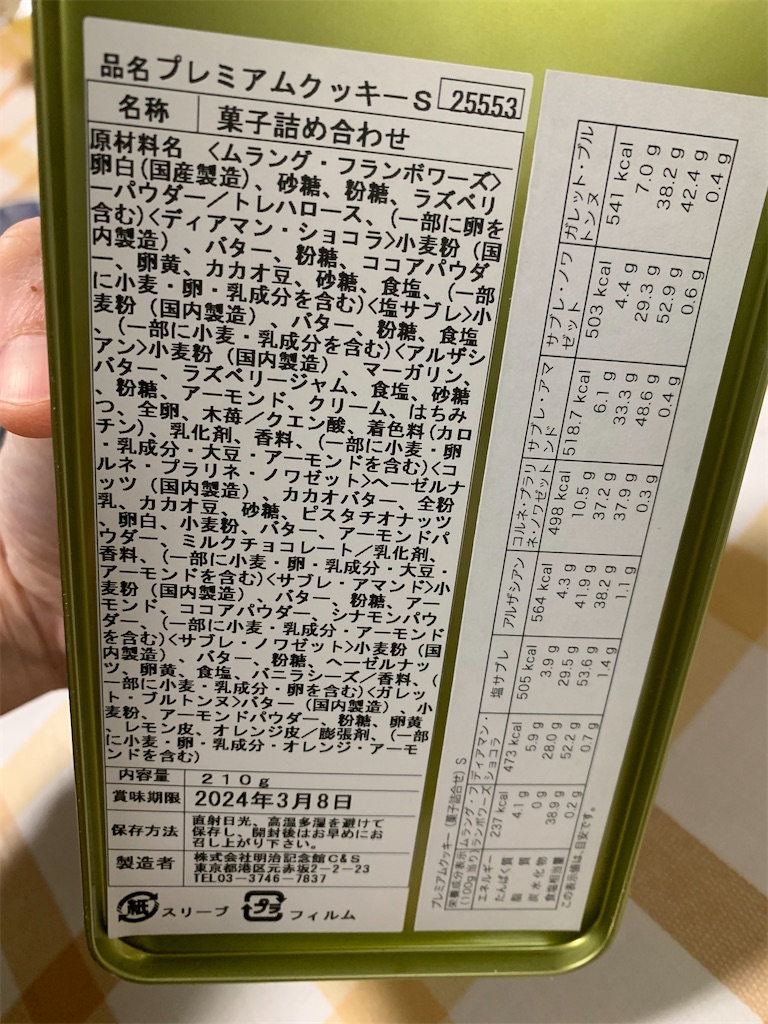 品名 プレミアムクッキーS 25553
名称 菓子詰め合わせ
原材料名 〈ムラング・フランボワーズ〉
卵白(国産製造)、砂糖、粉糖、ラズベリ
ーパウダー／トレハロース、(一部に卵を
含む)〈ディアマン・ショコラ〉小麦粉(国
内製造)、バター、粉糖、ココアパウダ
ー、卵黄、カカオ豆、砂糖、食塩、(一部
に小麦・卵・乳成分を含む)〈塩サブレ〉小
麦粉(国内製造)、バター、粉糖、食塩
、(一部に小麦・乳成分を含む)〈アルザシ
アン〉小麦粉(国内製造)、マーガリン、
バター、ラズベリージャム、食塩、砂糖
、粉糖、アーモンド、クリーム、はちみ
つ、全卵、木苺／クエン酸、着色料(カロ
チン)、乳化剤、香料、(一部に小麦・卵
・乳成分・大豆・アーモンドを含む)〈コ
ルネ・プラリネ・ノワゼット〉ヘーゼルナ
ッツ(国内製造)、カカオバター、全粉
乳、カカオ豆、砂糖、ピスタチオナッツ
、卵白、小麦粉、バター、アーモンドパ
ウダー、ミルクチョコレート／乳化剤、
香料、(一部に小麦・卵・乳成分・大豆・
アーモンドを含む)〈サブレ・アマンド〉小
麦粉(国内製造)、バター、粉糖、アー
モンド、ココアパウダー、シナモンパウ
ダー、(一部に小麦・乳成分・アーモンド
を含む)〈サブレ・ノワゼット〉小麦粉(国
内製造)、バター、粉糖、ヘーゼルナッ
ツ、卵黄、食塩、バニラシーズ／香料、(
一部に小麦・乳成分・卵を含む)〈ガレッ
ト・ブルトンヌ〉バター(国内製造)、小
麦粉、アーモンドパウダー、粉糖、卵黄
、レモン皮、オレンジ皮／膨張剤、(一部
に小麦・卵・乳成分・オレンジ・アーモ
ンドを含む)
内容量 210g
賞味期限 2024年3月8日
保存方法 直射日光、高温多湿を避けて
保存し、開封後はお早めにお
召し上がり下さい。
製造者 株式会社明治記念館C&S
東京都港区元赤坂2-2-23
TEL03-3746-7837
紙 スリーブ プラ フィルム
プレミアムクッキー(菓子詰合せ)S
栄養成分表示(100g当り) ムラング・フランボワーズ ディアマン・ショコラ 塩サブレ アルザシアン コルネ・プラリネ・ノワゼット サブレ・アマンド サブレ・ノワゼット ガレット・ブルトンヌ
エネルギー 237 kcal 473 kcal 505 kcal 564 kcal 498 kcal 518.7 kcal 503 kcal 541 kcal
たんぱく質 4.1 g 5.9 g 3.9 g 4.3 g 10.5 g 6.1 g 4.4 g 7.0 g
脂質 0 g 28.0 g 29.5 g 41.9 g 37.2 g 33.3 g 29.3 g 38.2 g
炭水化物 38.9 g 52.2 g 53.6 g 38.2 g 37.9 g 48.6 g 52.9 g 42.4 g
食塩相当量 0.2 g 0.7 g 1.4 g 1.1 g 0.3 g 0.4 g 0.6 g 0.4 g
この表示値は、目安です。